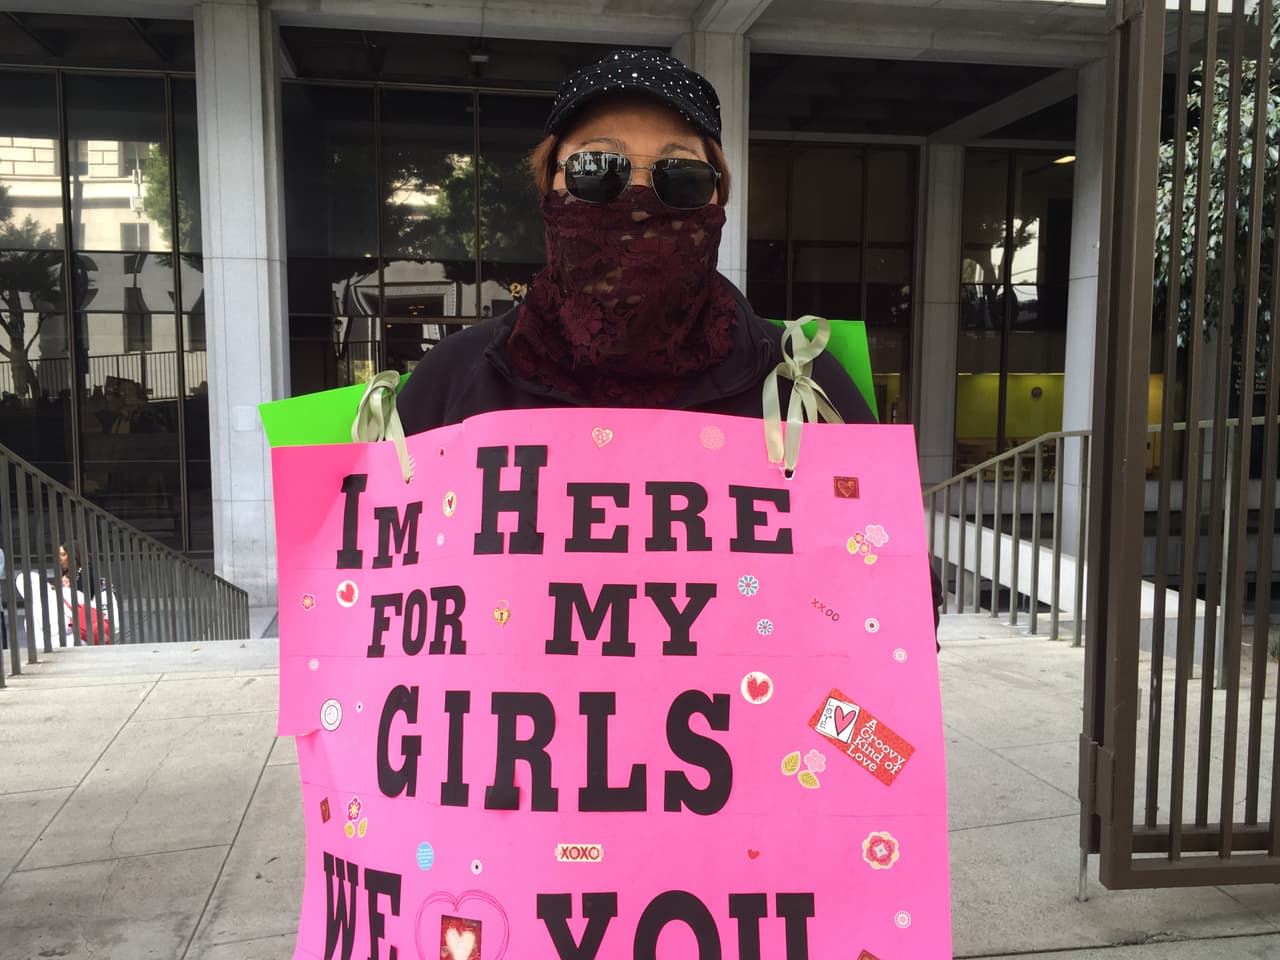 IM HERE
FOR MY
GIRLS
WE YOU
XXOO
LOVE
A
Groovy
Kind of
Love
XOXO